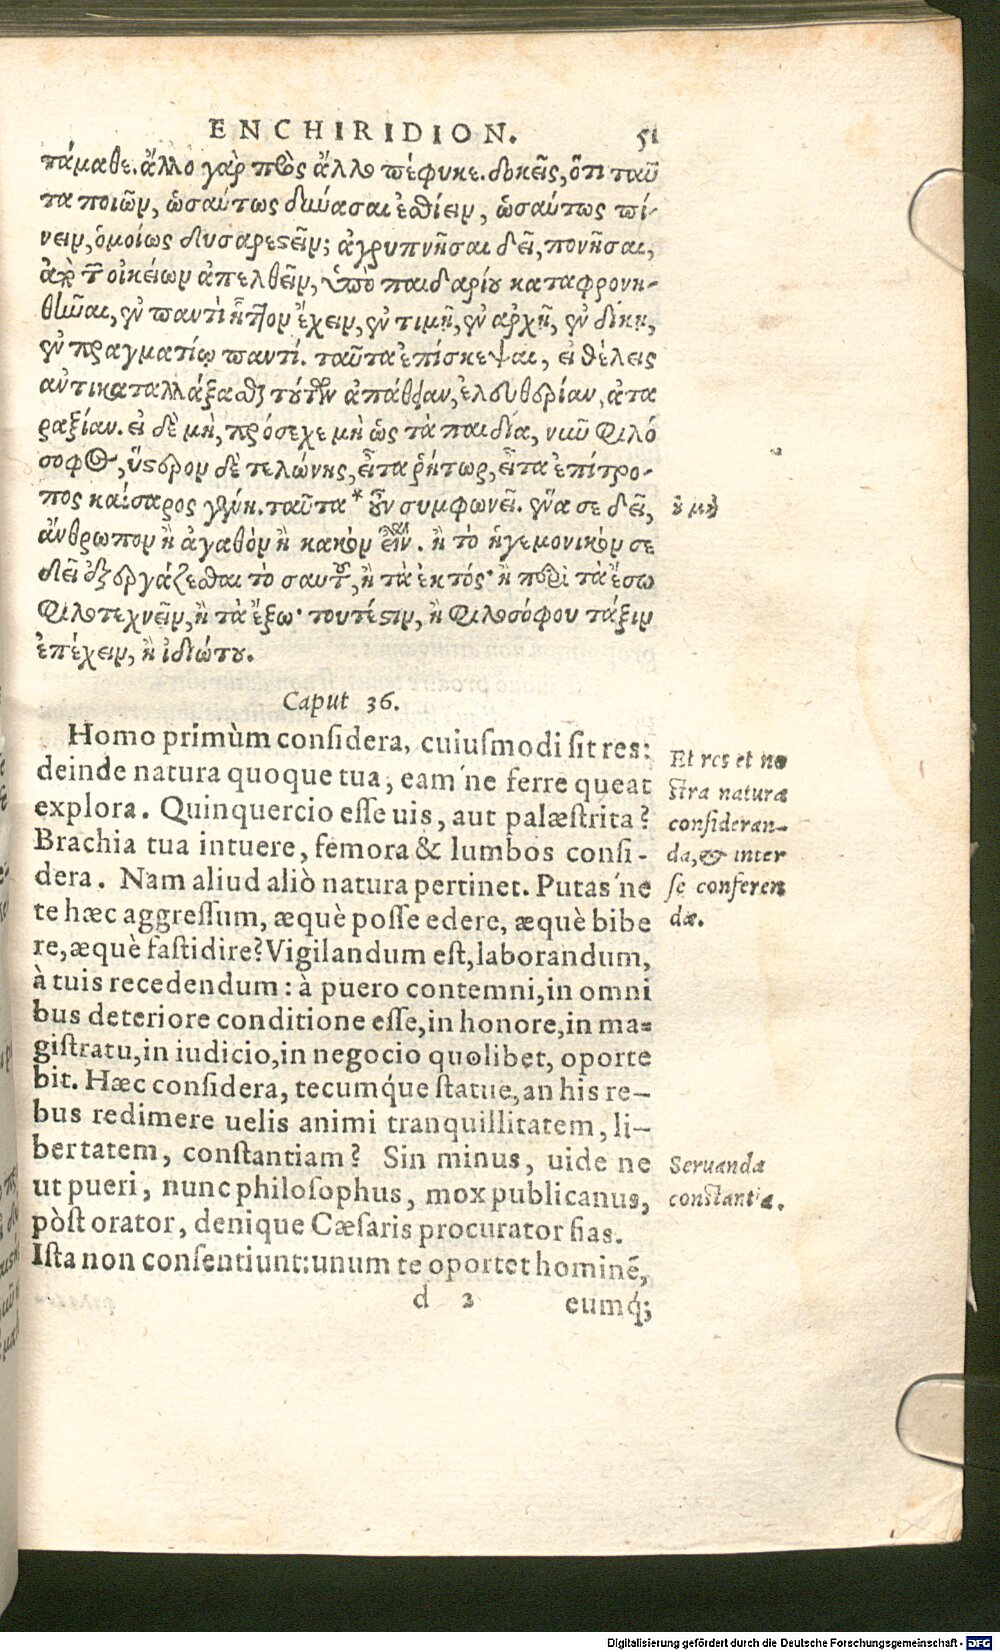 ENCHIRIDION. 51
τάμαθε. ἄλλο γὰρ πρὸς ἄλλο πέφυκε. δοκεῖς, ὅτι ταῦ
τα ποιῶν, ὡσαύτως δύνασαι ἐσθίειν, ὡσαύτως πί-
νειν, ὁμοίως δυσαρεστεῖν; ἀγρυπνῆσαι δεῖ, πονῆσαι,
ἀπὸ τῶν οἰκείων ἀπελθεῖν, ὑπὸ παιδαρίου καταφρονη-
θῆναι, ἐν παντὶ ἧττον ἔχειν, ἐν τιμῇ, ἐν ἀρχῇ, ἐν δίκῃ,
ἐν πραγματίῳ παντί. ταῦτα ἐπίσκεψαι, εἰ θέλεις
ἀντικαταλλάξασθαι τούτων ἀπάθειαν, ἐλευθερίαν, ἀτα
ραξίαν. εἰ δὲ μὴ, πρόσεχε μὴ ὡς τὰ παιδία, νῦν φιλό
σοφος, ὕστερον δὲ τελώνης, εἶτα ῥήτωρ, εἶτα ἐπίτρο-
πος καίσαρος γένῃ. ταῦτα * οὖν συμφωνεῖ. ἕνα σε δεῖ,
ἄνθρωπον ἢ ἀγαθὸν ἢ κακὸν εἶναι. ἢ τὸ ἡγεμονικόν σε
δεῖ ἐξεργάζεσθαι τὸ σαυτοῦ, ἢ τὰ ἐκτός· ἢ περὶ τὰ ἔσω
φιλοτεχνεῖν, ἢ τὰ ἔξω· τουτέστιν, ἢ φιλοσόφου τάξιν
ἐπέχειν, ἢ ἰδιώτου.
Caput 36.
Homo primùm considera, cuiusmodi sit res:
deinde natura quoque tua, eam'ne ferre queat
explora. Quinquercio esse uis, aut palæstrita?
Brachia tua intuere, femora & lumbos consi-
dera. Nam aliud aliò natura pertinet. Putas'ne
te hæc aggressum, æquè posse edere, æquè bibe
re, æquè fastidire? Vigilandum est, laborandum,
à tuis recedendum: à puero contemni, in omni
bus deteriore conditione esse, in honore, in ma-
gistratu, in iudicio, in negocio quolibet, oporte
bit. Hæc considera, tecumq́ue statue, an his re-
bus redimere uelis animi tranquillitatem, li-
bertatem, constantiam? Sin minus, uide ne
ut pueri, nunc philosophus, mox publicanus,
pòst orator, denique Cæsaris procurator fias.
Ista non consentiunt: unum te oportet hominẽ,
d 2 eumq́;
οὐ μὴ
Et res et no
stra natura
consideran-
da, & inter
se conferen
dæ.
Seruanda
constantia.
Digitalisierung gefördert durch die Deutsche Forschungsgemeinschaft - DFG